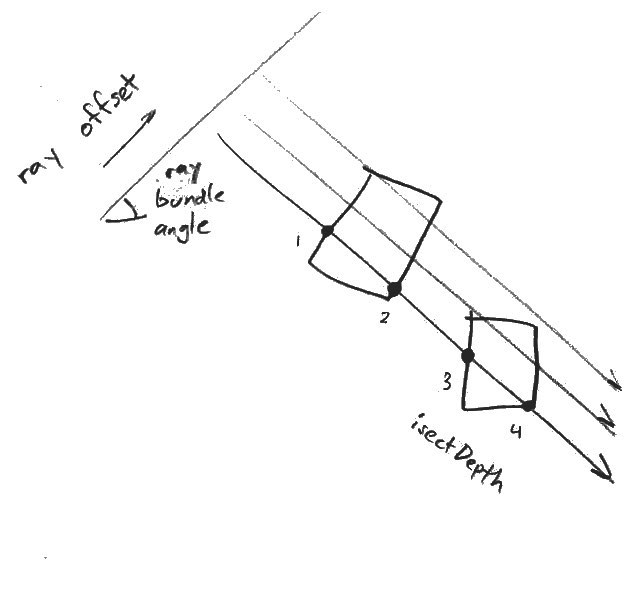 ray offset
ray
bundle
angle
1
2
3
4
isectDepth